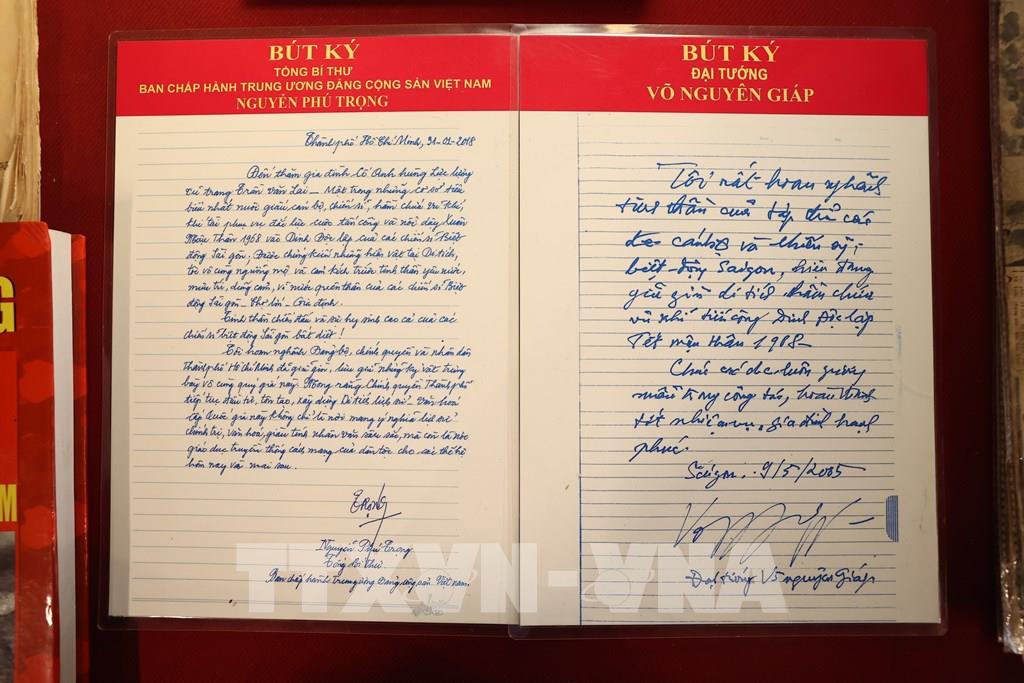 BÚT KÝ
TỔNG BÍ THƯ
BAN CHẤP HÀNH TRUNG ƯƠNG ĐẢNG CỘNG SẢN VIỆT NAM
NGUYỄN PHÚ TRỌNG
Thành phố Hồ Chí Minh, 31-01-2018
Đến thăm gia đình Cố Anh hùng Lực lượng
vũ trang Trần Văn Lai – Một trong những cơ sở tiêu
biểu nhất nuôi giấu cán bộ, chiến sĩ, hầm chứa vũ khí,
khí tài phục vụ đắc lực cuộc tấn công và nổi dậy Xuân
Mậu Thân 1968 vào Dinh Độc lập của các chiến sĩ Biệt
động Sài Gòn; Được chứng kiến những hiện vật tại Di tích,
tôi vô cùng ngưỡng mộ và cảm kích trước tinh thần yêu nước,
mưu trí, dũng cảm, vì nước quên thân của các chiến sĩ Biệt
động Sài Gòn – Chợ Lớn – Gia Định.
Tinh thần chiến đấu và sự hy sinh cao cả của các
chiến sĩ biệt động Sài Gòn bất diệt!
Tôi hoan nghênh Đảng bộ, chính quyền và nhân dân
Thành phố Hồ Chí Minh đã giữ gìn, lưu giữ những kỷ vật trưng
bày vô cùng quý giá này. Mong rằng Chính quyền Thành phố
tiếp tục đầu tư, tôn tạo, xây dựng Di tích lịch sử - Văn hoá
cấp Quốc gia này không chỉ là nơi mang ý nghĩa lịch sử
chính trị, văn hoá, giàu tính nhân văn sâu sắc, mà còn là nơi
giáo dục truyền thống cách mạng của dân tộc cho các thế hệ
hôm nay và mai sau.
Trọng
Nguyễn Phú Trọng
Tổng bí thư
Ban chấp hành trung ương Đảng cộng sản Việt Nam
BÚT KÝ
ĐẠI TƯỚNG
VÕ NGUYÊN GIÁP
Tôi rất hoan nghênh
tinh thần của tập thể các
cán bộ và chiến sỹ,
biệt-động Saigon, hiện đang
giữ gìn di tích hầm chứa
vũ khí tiến công Dinh Độc lập
Tết mậu thân 1968-
Chúc các đ/c luôn gương
mẫu trong công tác, hoàn thành
tốt nhiệm vụ, gia đình hạnh
phúc.
Saigon. 9/5/2005
Đại tướng Võ nguyên Giáp
G
M
TTXVN - VNA